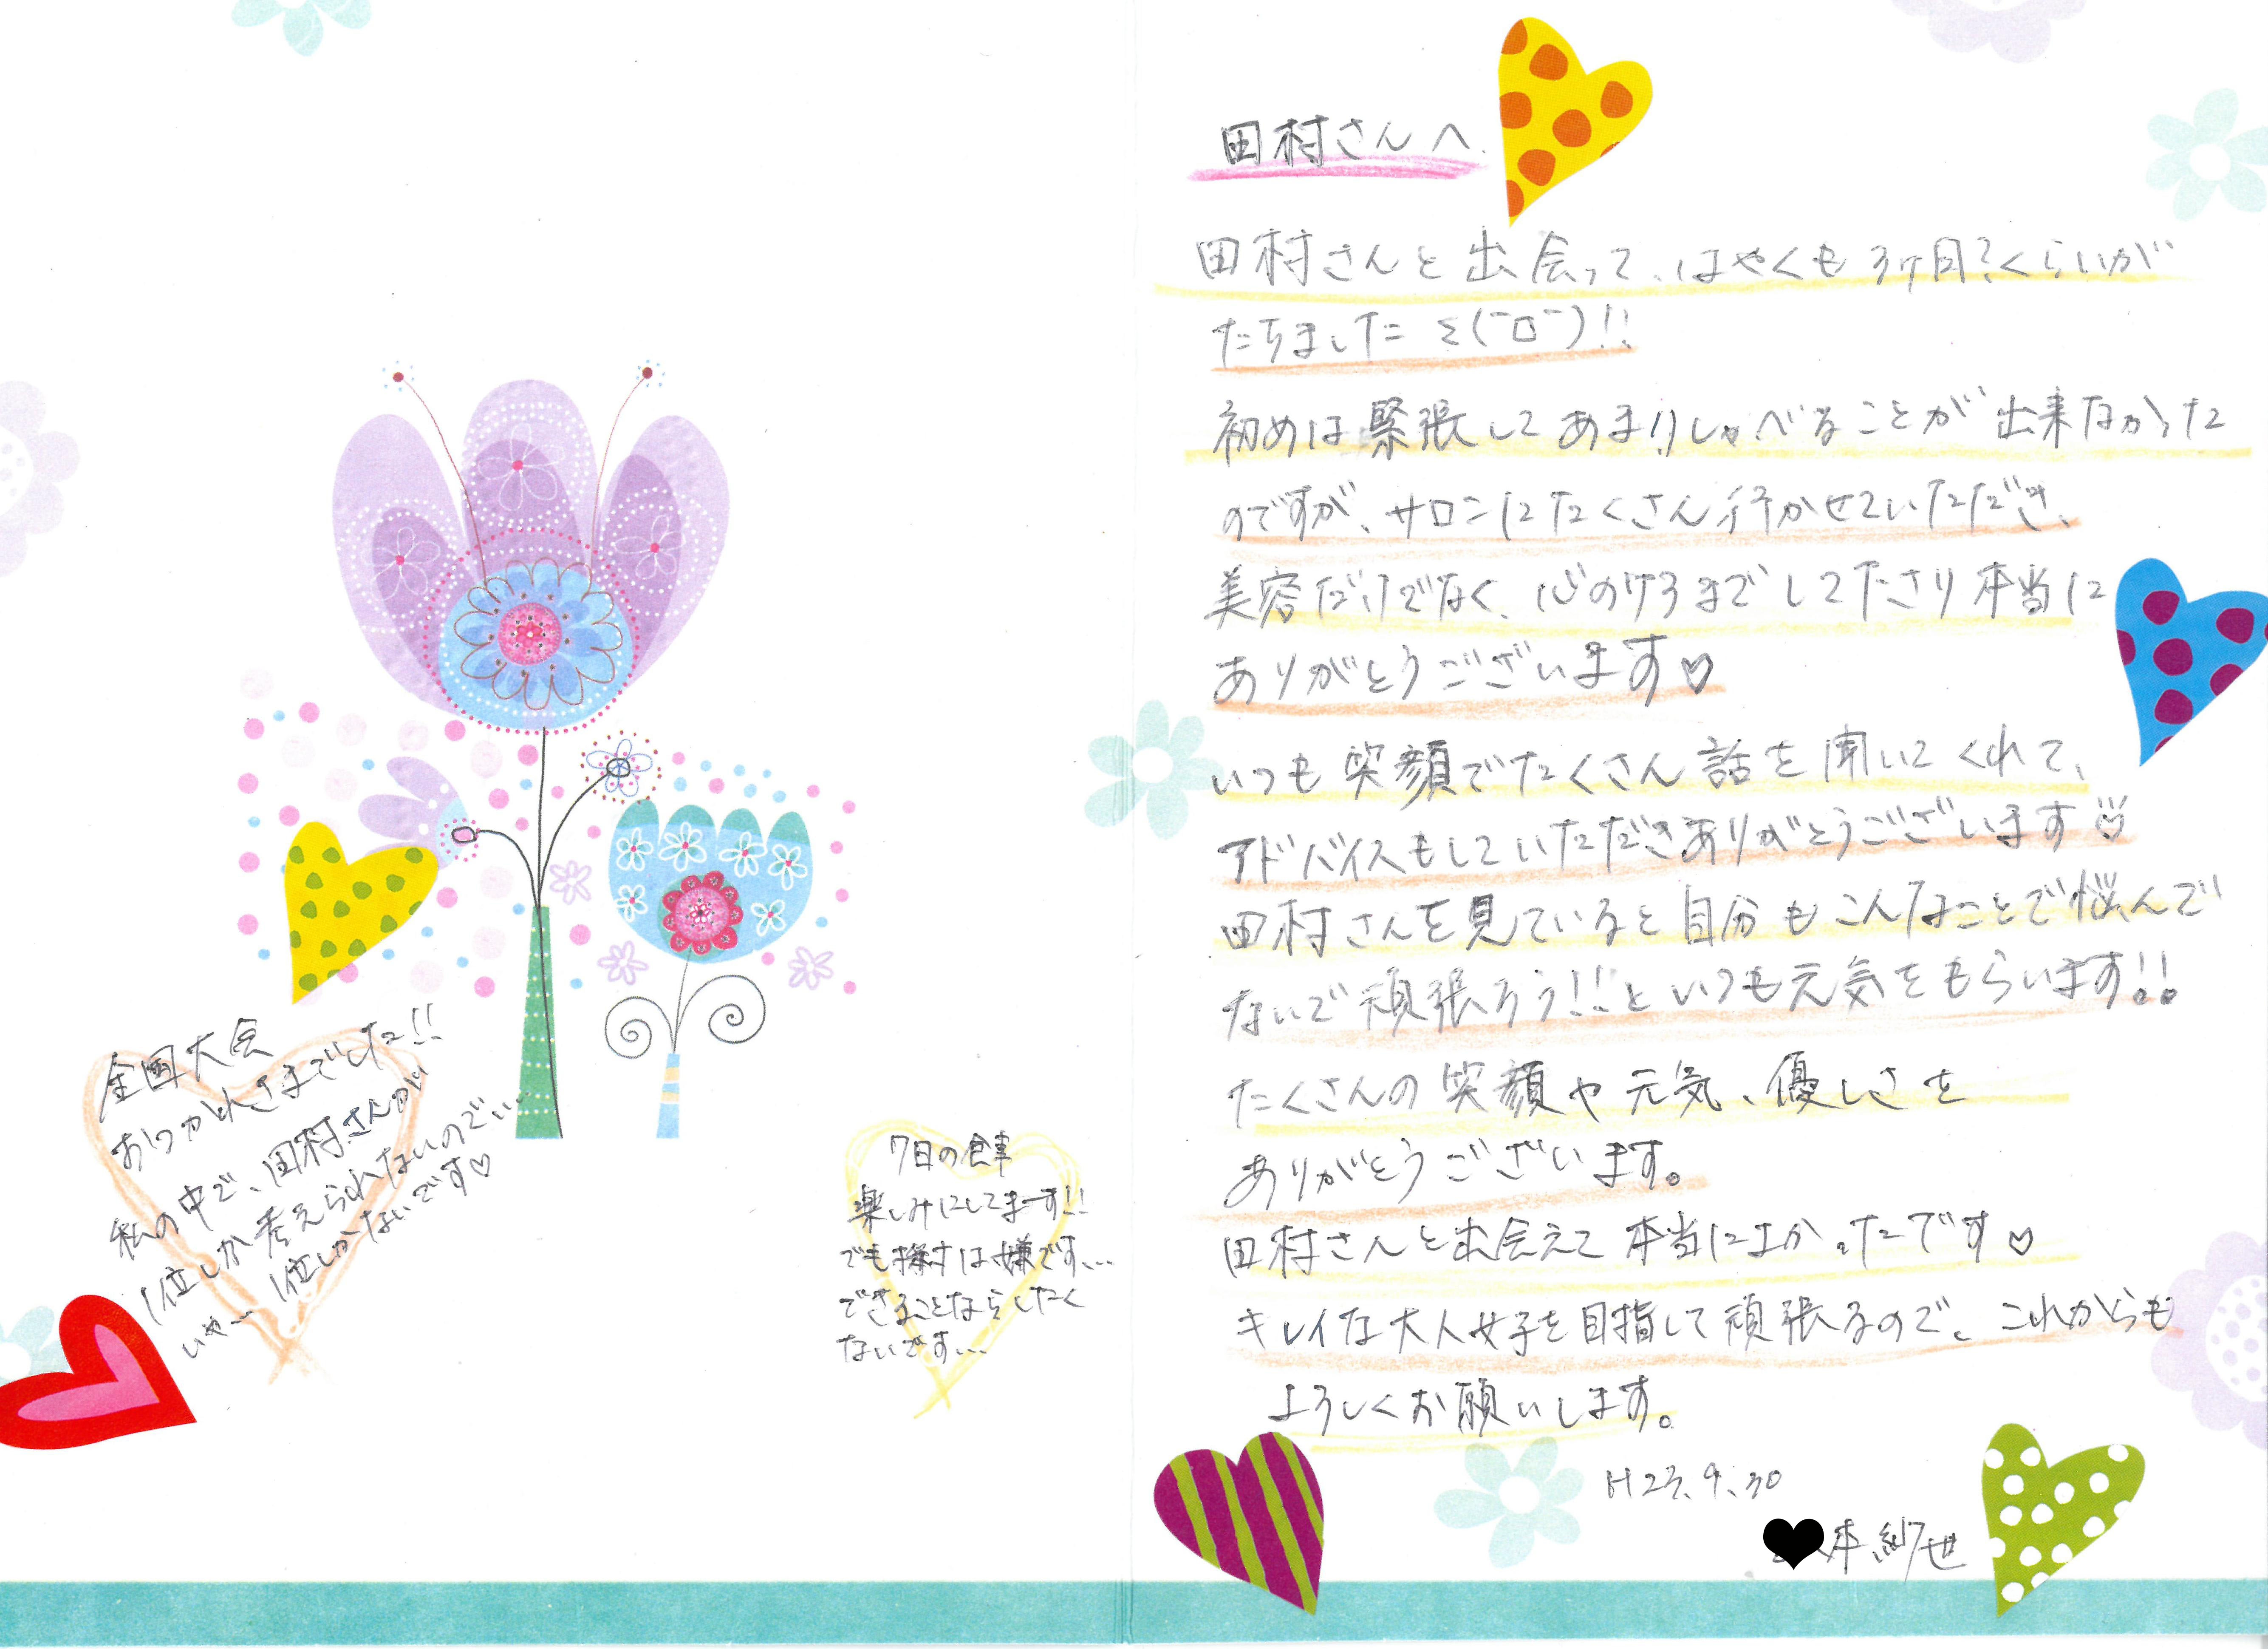 全国大会
おつかれさまでした!!
私の中で、田村さんが
1位しか考えられないのでい…
いや〜 1位しかないです♡
7日の食事
楽しみにしてまーす!!
でも採寸は嫌です…
できることならしたく
ないです…
田村さんへ
田村さんと出会って、はやくも3ヶ月?くらいが
たちました Σ(￣ロ￣)!!
初めは緊張してあまりしゃべることが出来なかった
のですが、サロンにたくさん行かせていただき、
美容だけでなく、心のケアまでしてくださり本当に
ありがとうございます♡
いつも笑顔でたくさん話を聞いてくれて、
アドバイスもしていただきありがとうございます
田村さんを見ていると自分もこんなことで悩んで
ないで頑張ろう!!といつも元気をもらいます!!
たくさんの笑顔や元気、優しさを
ありがとうございます。
田村さんと出会えて本当によかったです♡
キレイな大人女子を目指して頑張るので、これからも
よろしくお願いします。
H23.9.30
本紗世